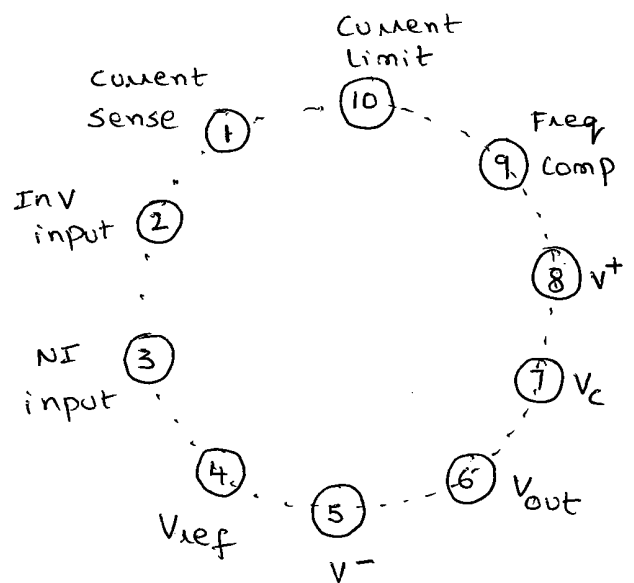 Current
Limit
10
Current
Sense
1
Freq
Comp
9
Inv
input
2
8
V+
NI
input
3
7
Vc
4
Vref
5
V-
6
Vout